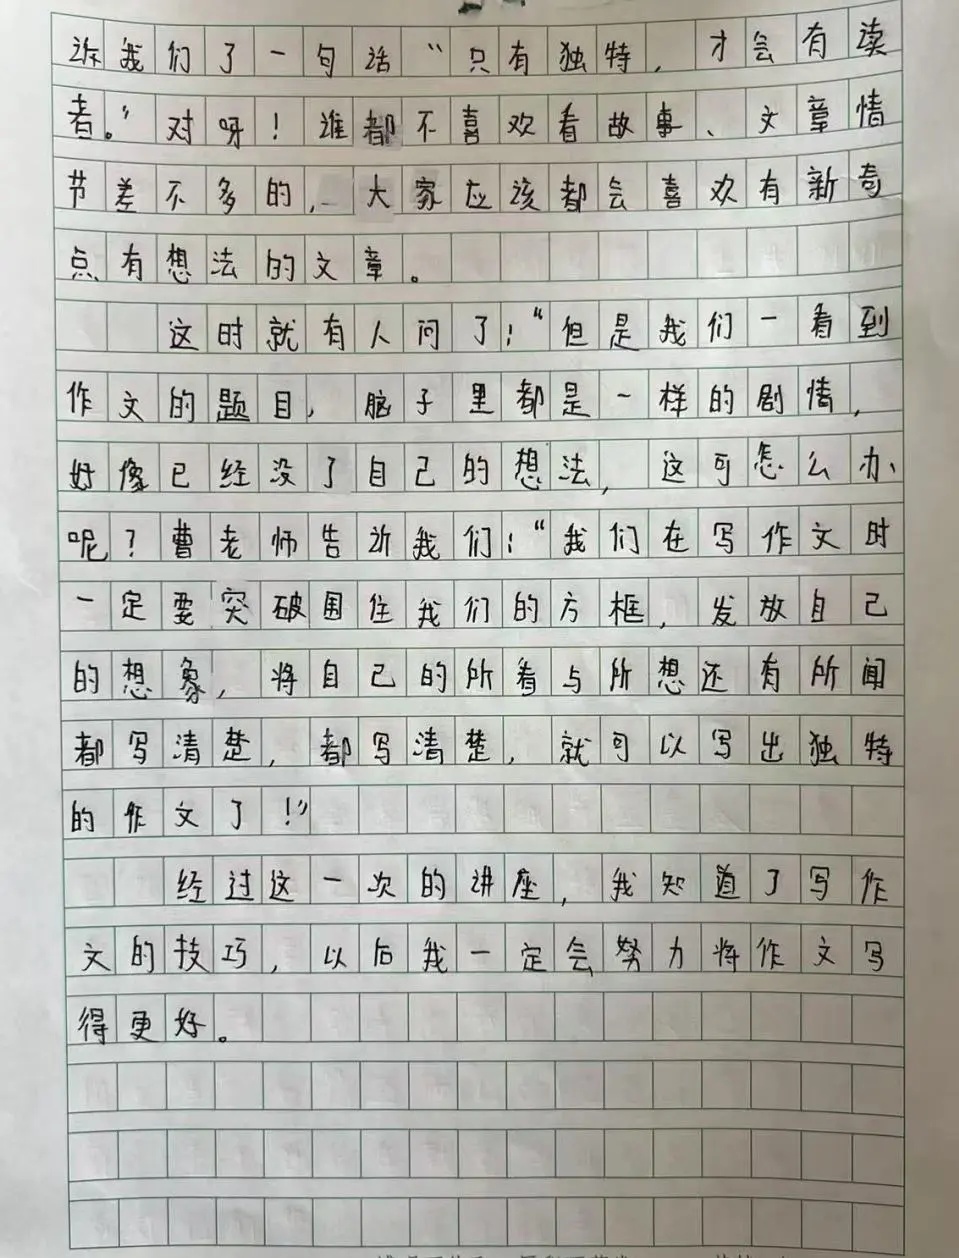 诉我们了一句话“只有独特，才会有读
者。”对呀！谁都不喜欢看故事、文章情
节差不多的，大家应该都会喜欢有新奇
点有想法的文章。
这时就有人问了：“但是我们一看到
作文的题目，脑子里都是一样的剧情，
好像已经没了自己的想法，这可怎么办
呢？曹老师告诉我们：“我们在写作文时
一定要突破围住我们的方框，发放自己
的想象，将自己的所看与所想还有所闻
都写清楚，都写清楚，就可以写出独特
的作文了！”
经过这一次的讲座，我知道了写作
文的技巧，以后我一定会努力将作文写
得更好。